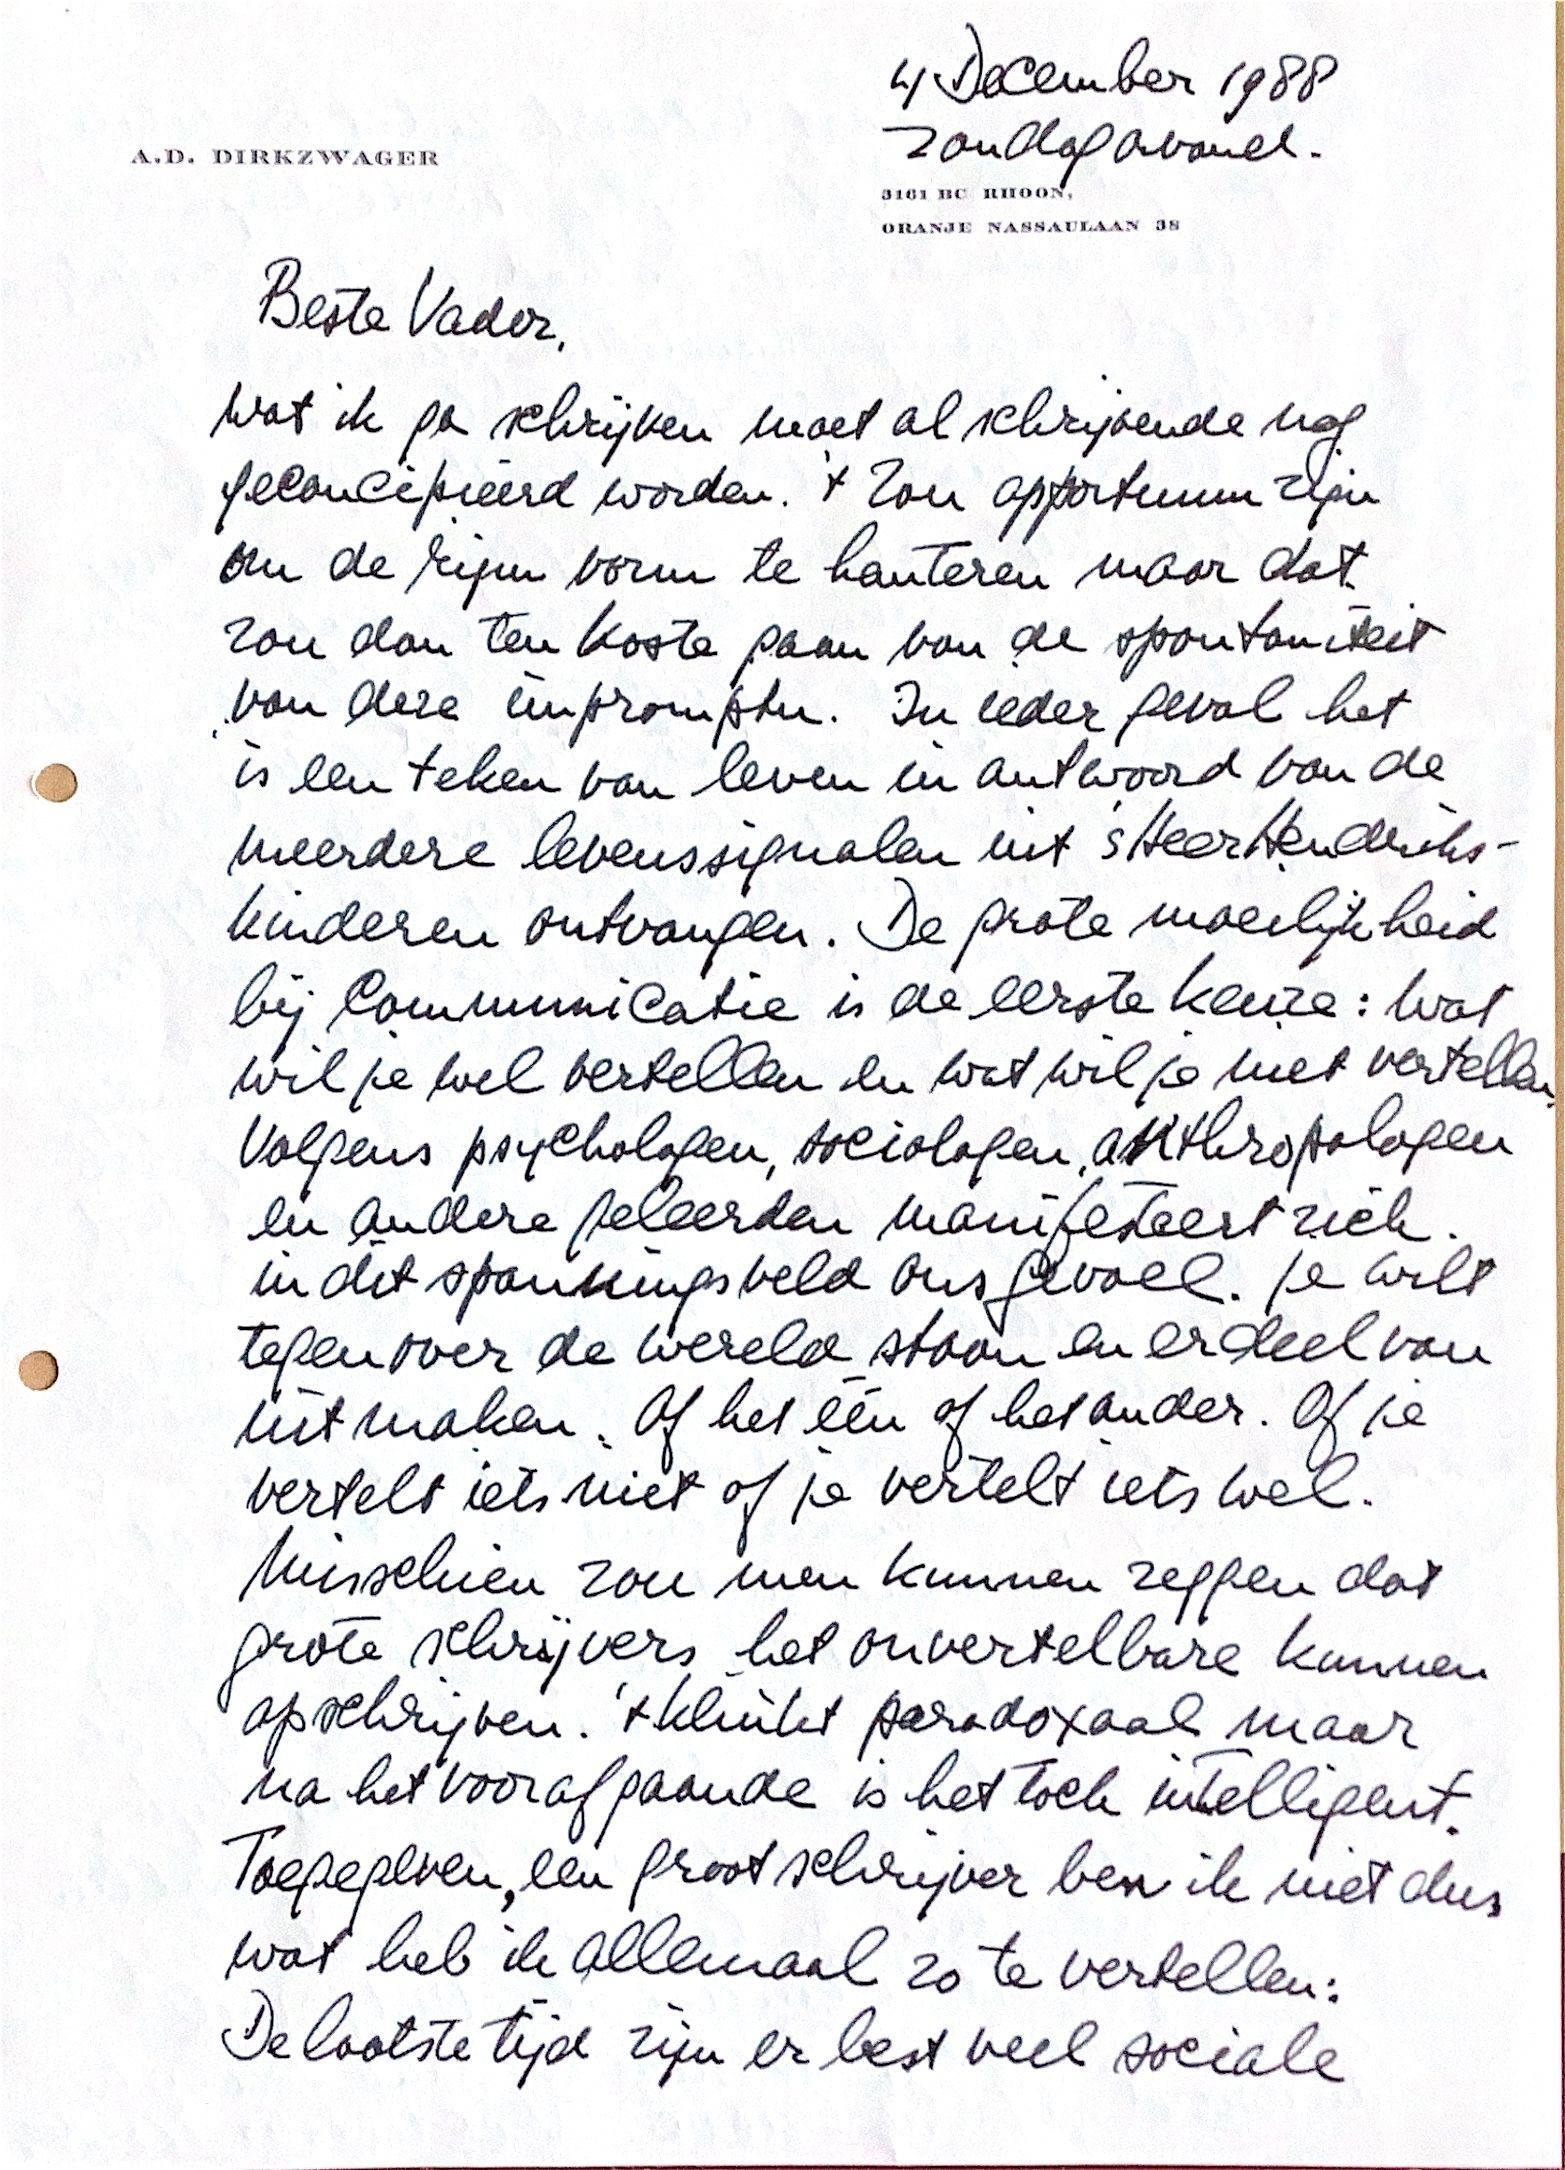 4 December 1988
Zondagavond.
A.D. DIRKZWAGER
3161 BC RHOON,
ORANJE NASSAULAAN 38
Beste Vader,
wat ik ga schrijven moet al schrijvende nog
geconcipiëerd worden. 't Zou opportuun zijn
om de rijm vorm te hanteren maar dat
zou dan ten koste gaan van de spontaniteit
van deze impromptu. In ieder geval het
is een teken van leven in antwoord van de
meerdere levenssignalen uit 's Heer Hendriks-
kinderen ontvangen. De grote moeilijkheid
bij communicatie is de eerste keuze: wat
wil je wel vertellen en wat wil je niet vertellen.
Volgens psychologen, sociologen, anthropologen
en andere geleerden manifesteert zich
in dit spanningsveld ons gevoel. Je wilt
tegenover de wereld staan en er deel van
uitmaken. Of het één of het ander. Of je
vertelt iets niet of je vertelt iets wel.
Misschien zou men kunnen zeggen dat
grote schrijvers het onvertelbare kunnen
opschrijven. 't klinkt paradoxaal maar
na het voorafgaande is het toch intelligent.
Toegegeven, een groot schrijver ben ik niet dus
wat heb ik allemaal zo te vertellen:
De laatste tijd zijn er best veel sociale